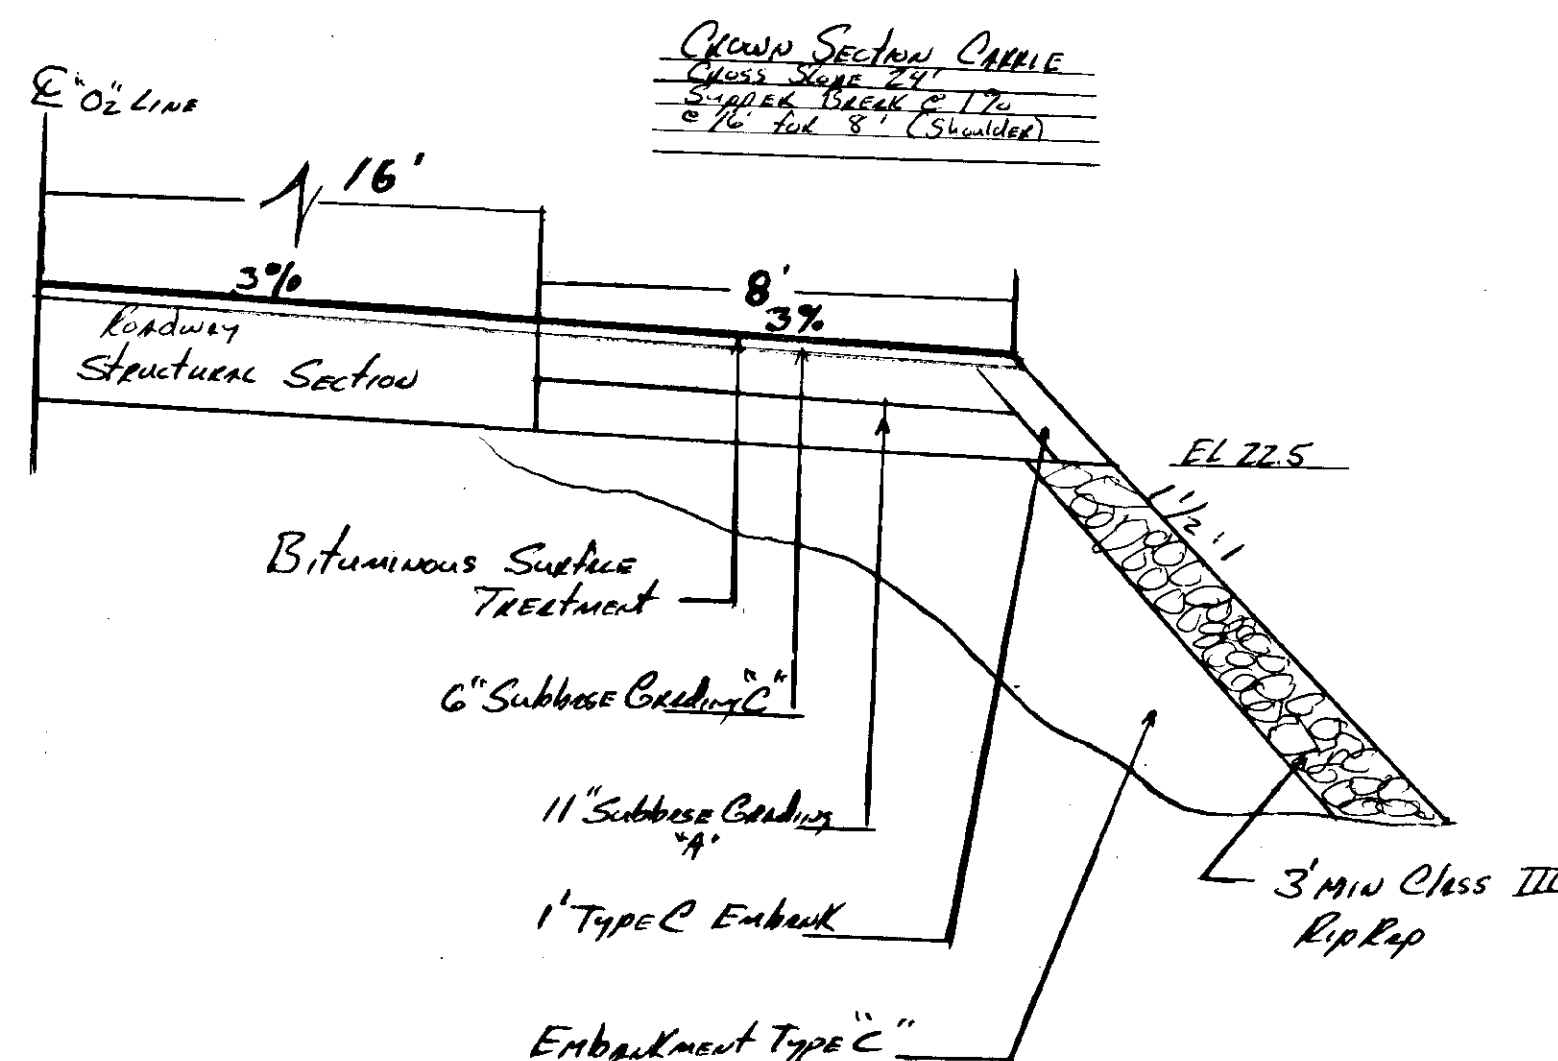 Crown Section Carrie
Cross Slope 24'
Supper Break @ 1%
@ 16' for 8' (Shoulder)
℄ "O2" Line
16'
3%
8'
3%
Roadway
Structural Section
EL 22.5
1 1/2:1
Bituminous Surface
Treatment
6" Subbase Grading "C"
11" Subbase Grading
"A"
1' Type C Embank
3' Min Class III
Rip Rap
Embankment Type "C"